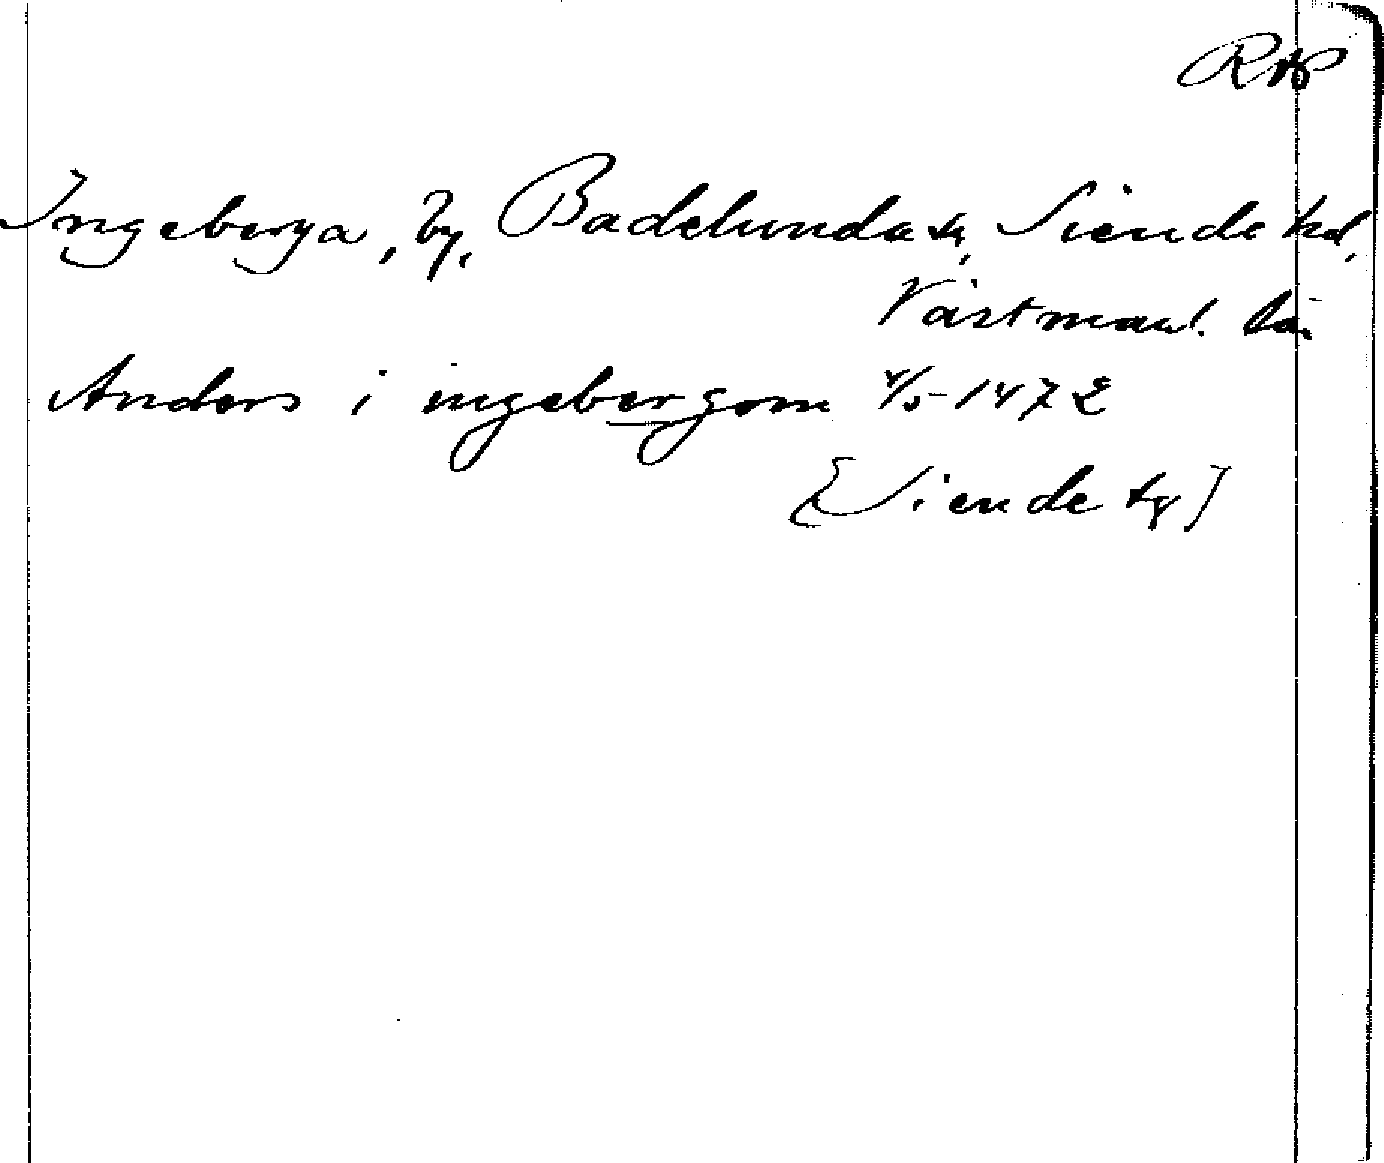 RAP
Ingeberga, by, Badelunda sn, Siende hd,
Västmanl. län
Anders i ingebergom 4/5 1472
[Siende tg]